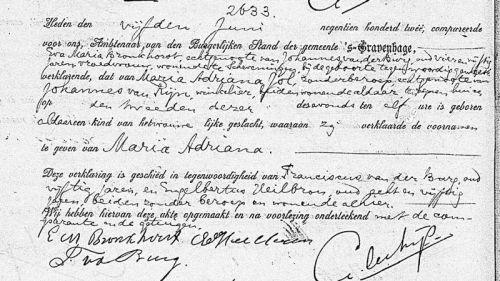 2633.
Heden den vijfden Juni negentien honderd twee, compareerde
voor ons, Ambtenaar van den Burgerlijken Stand der gemeente 's-Gravenhage,
Maria Bronkhorst, echtgenoote van Johannes van der Burg, oud vier en vijftig
jaren, vroedvrouw, wonende te Scheveningen, bij de geboorte tegenwoordig geweest
verklarende, dat van Maria Adriana Jol, zonder beroep, echtgenoote van
Johannes van Rijn, winkelier, beiden wonende aldaar, te
op den tweeden dezer des avonds ten elf ure is geboren
aldaar een kind van het vrouwelijke geslacht, waaraan zij verklaarde de voornamen
te geven van Maria Adriana.
Deze verklaring is geschied in tegenwoordigheid van Franciscus van der Burg, oud
vijftig jaren, en Engelbertus Heilbron, oud acht en vijftig
jaren, beiden zonder beroep en wonende alhier.
Wij hebben hiervan deze akte opgemaakt en na voorlezing onderteekend met de com-
parante en de getuigen.
Bronkhorst
v d Burg